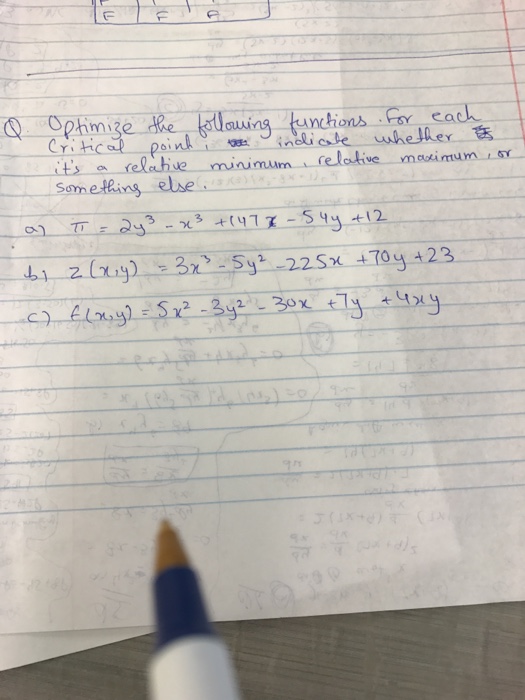 F F A
Q Optimize the following functions. For each
Critical point, indicate whether
it's a relative minimum, relative maximum, or
something else.
a) π = 2y³ - x³ + 147x - 54y + 12
b) z(x,y) = 3x³ - 5y² - 225x + 70y + 23
c) f(x,y) = 5x² - 3y² - 30x + 7y + 4xy